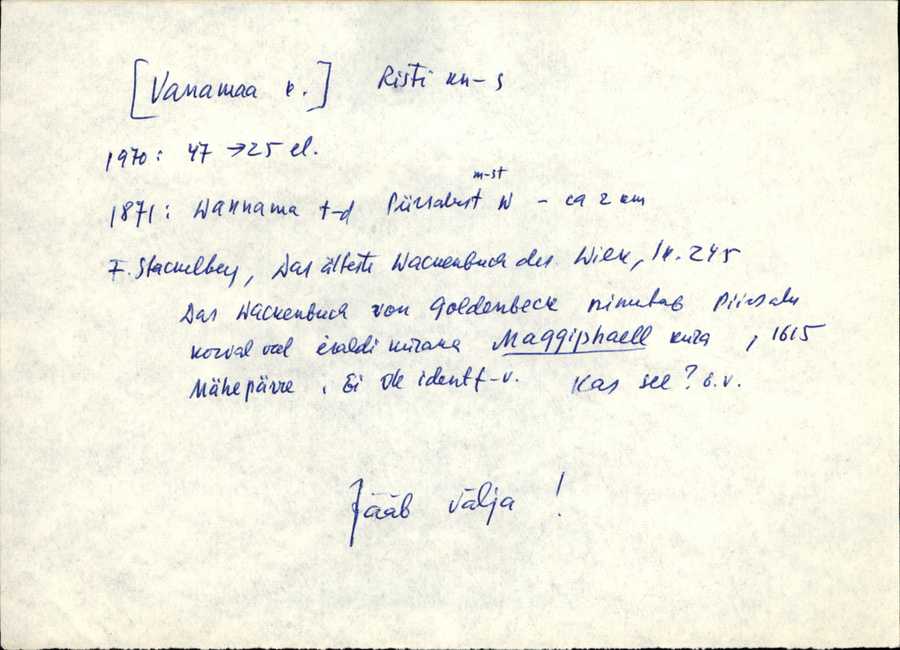 [Vanamaa k.] Risti kn-s
1970: 47 → 25 el.
m-st
1871: Wannama t-d Piirsalust N - ca 2 km
F. Stackelberg, Das älteste Wackenbuch der Wiek, lk. 245
Das Wackenbuch von Goldenbeck nimetab Piirsalu
kõrval veel eraldi külana Maggiphaell küla, 1615
Mähepärre. Ei ole identf-v. Kas see? E.V.
Jääb välja!